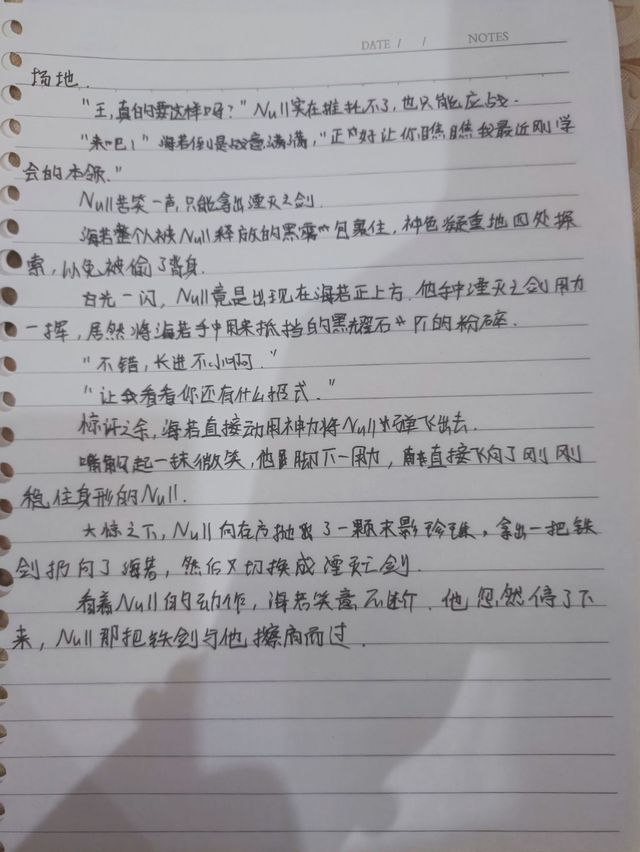 DATE / /
NOTES
场地.
"王,真的要这样吗?"Null实在推托不了,也只能应战.
"来吧!"海若倒是战意满满,"正好让你瞧瞧我最近刚学
会的本领."
Null苦笑一声,只能拿出湮灭之剑.
海若整个人被Null释放的黑雾包裹住,神色凝重地四处探
索,以免被偷了背身.
白光一闪,Null竟是出现在海若正上方.他手中湮灭之剑用力
一挥,居然将海若手中用来抵挡的黑耀石 的粉碎.
"不错,长进不小啊."
"让我看看你还有什么招式."
惊讶之余,海若直接动用神力将Null 弹飞出去.
嘴角 起一抹微笑,他 脚下一用力, 直接飞向了刚刚
稳住身形的Null.
大惊之下,Null向右方抛出了一颗末影珍珠,拿出一把铁
剑扔向了海若,然后又切换成湮灭之剑.
看着Null的动作,海若笑意不断.他忽然停了下
来,Null那把铁剑与他擦肩而过.